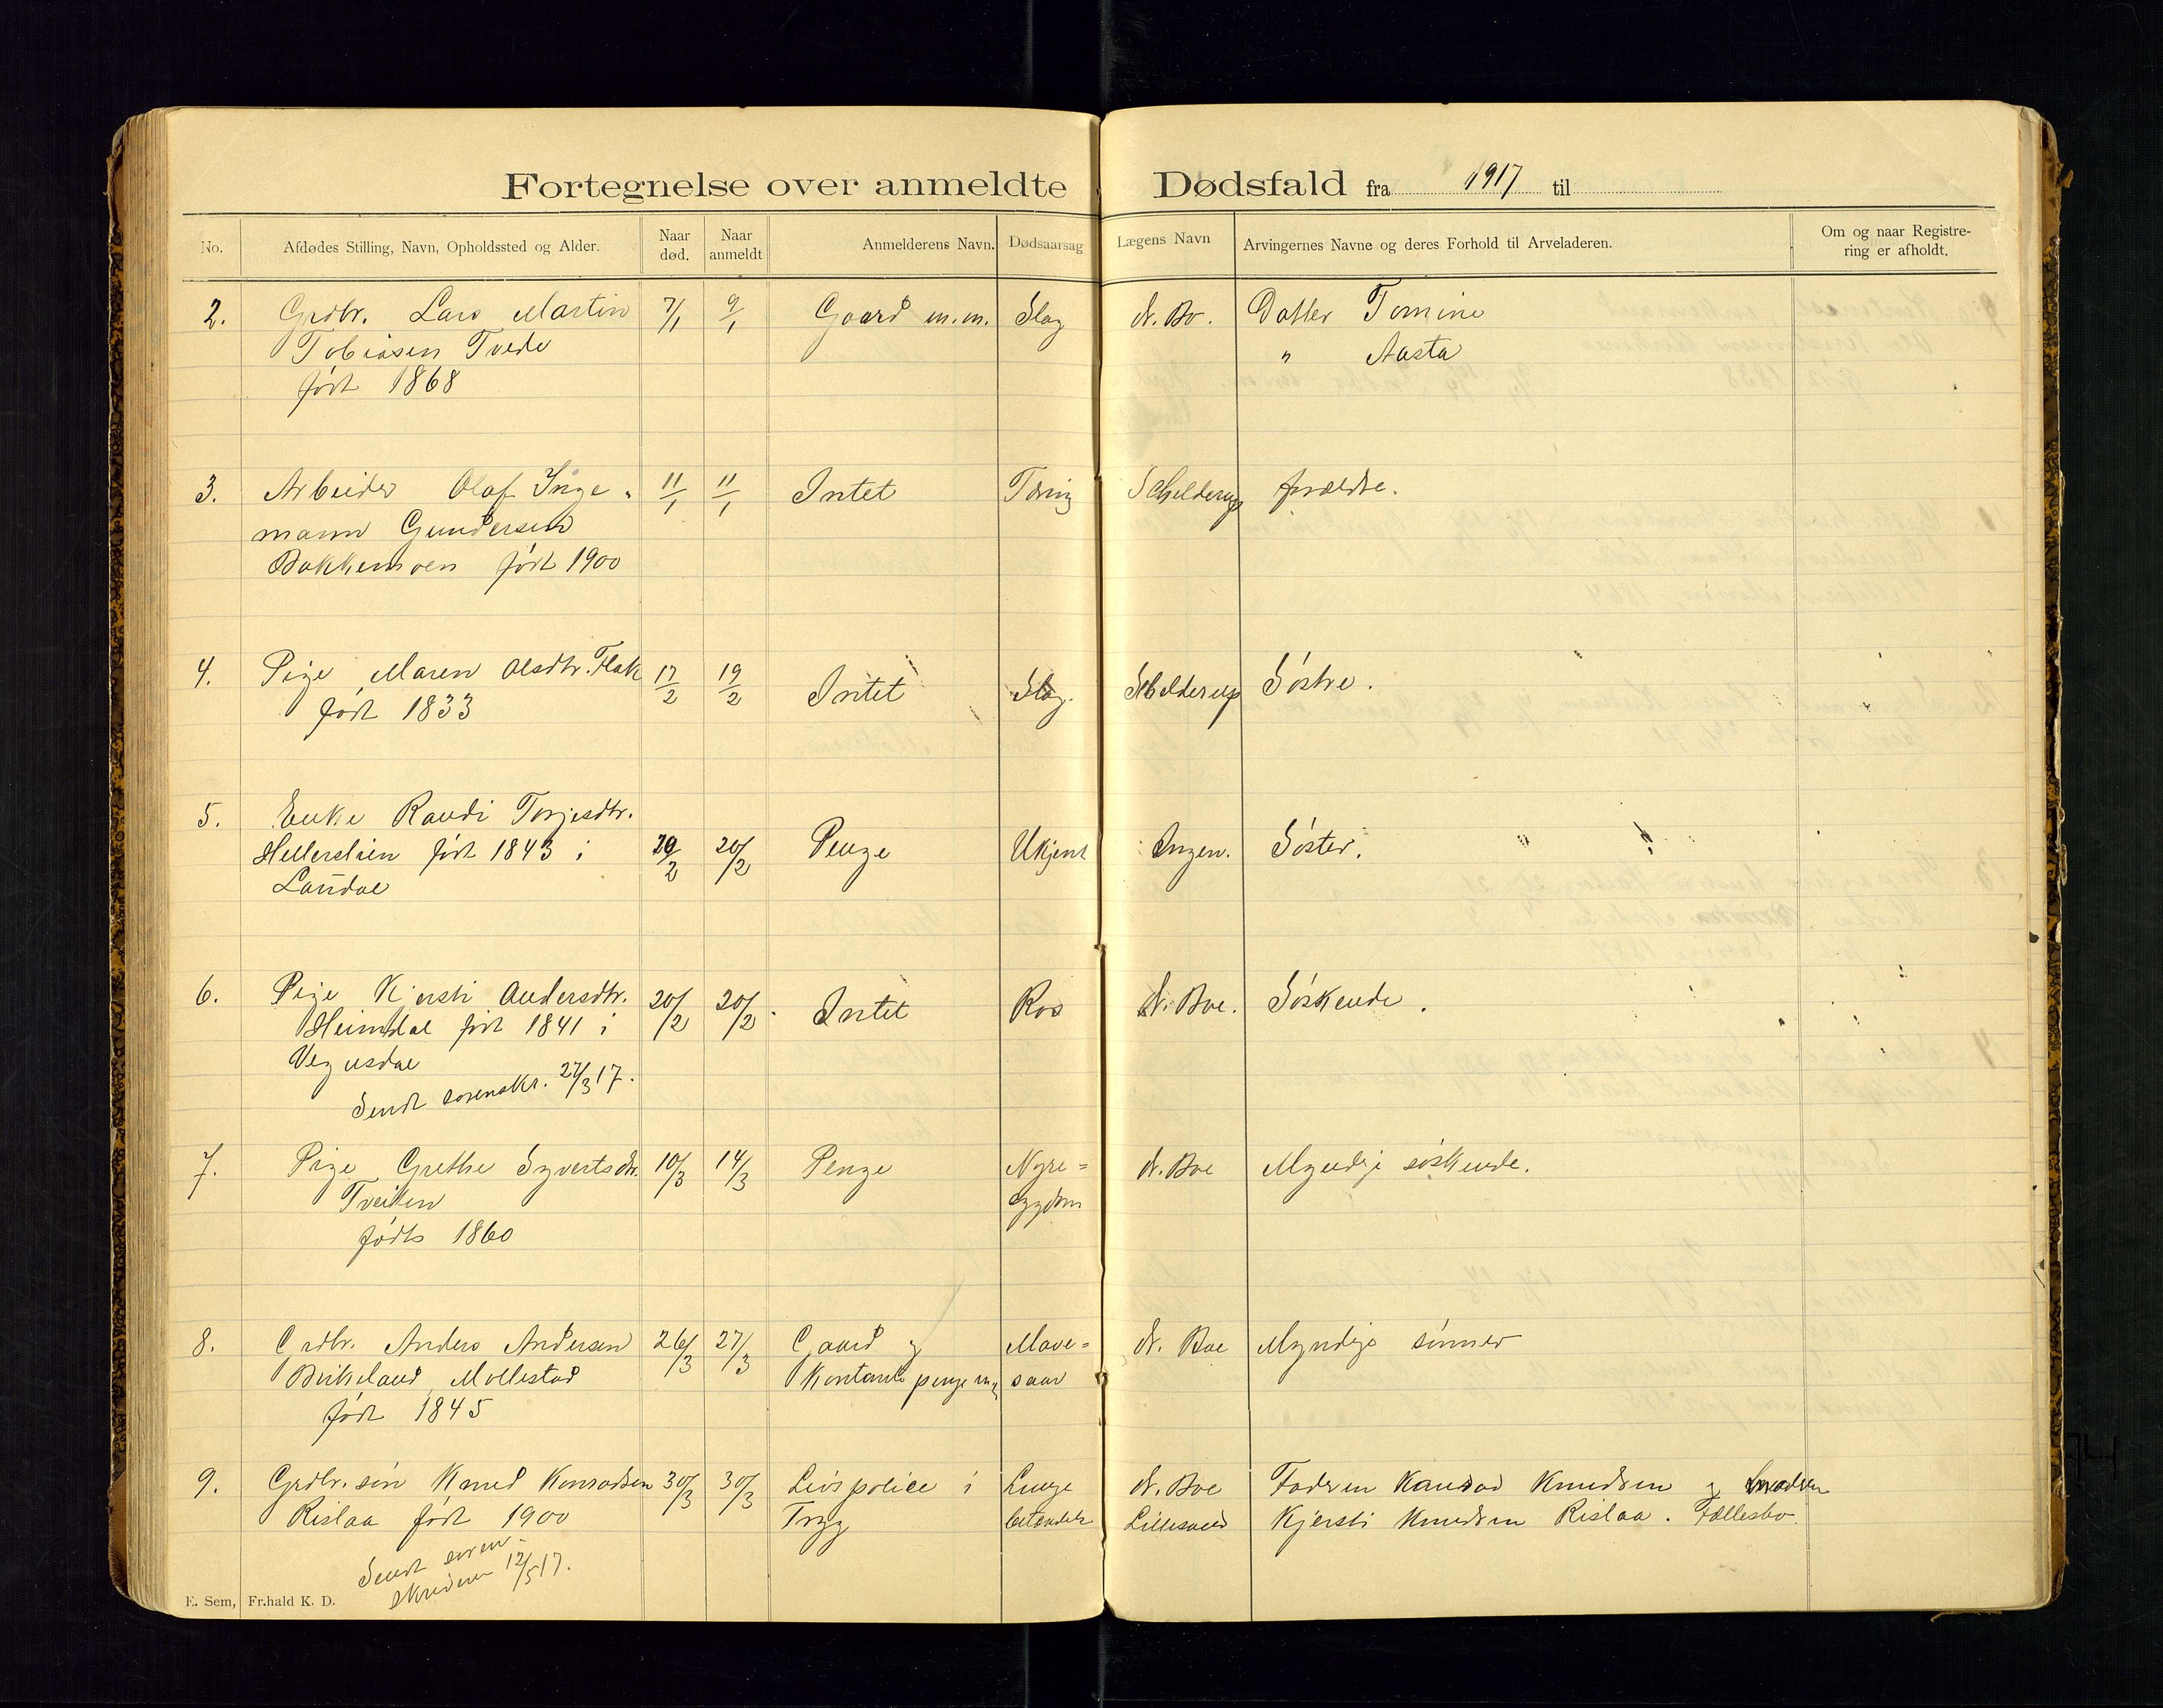 Fortegnelse over anmeldte Dødsfald fra 1917 til
No. Afdødes Stilling, Navn, Opholdssted og Alder. Naar død. Naar anmeldt Anmelderens Navn. Dødsaarsag Lægens Navn Arvingernes Navne og deres Forhold til Arveladeren. Om og naar Registrering er afholdt.
2. Grdbr. Lars Martin 7/1 9/1 Gaard m.m. Slag N. Bo. Datter Tomine
Tobiasen Tvede " Aasta
født 1868
3. Arbeider Olaf Inge- 11/1 11/1 Intet Tæring Schelderup forældre.
mann Gundersen
Bakkemoen født 1900
4. Pige Maren Olsdtr. Flak 17/2 19/2 Intet Slag. Schelderup Søstre.
født 1833
5. Enke Randi Torjesdtr.
Hellerslien født 1843 i 20/2 20/2 Penge Ukjent Ingen. Søster.
Landal
6. Pige Kjersti Andersdtr. 20/2 20/2 Intet Ros N. Boe. Søskende.
Heimdal født 1841 i
Vegusdal
Sendt sorenskr. 27/3 17.
7. Pige Grethe Syvertsdtr. 10/3 14/3 Penge Nyre= N. Boe Myndige søskende.
Tveiten sygdom
født 1860
8. Grdbr. Anders Andersen 26/3 27/3 Gaard og Mave= N. Boe Myndige sønner
Birkeland, Mollestad Kontante penge saar
født 1845
9. Grdbr. søn Knud Konradsen 30/3 30/3 Livspolice i Lunge N. Boe Faderen Konrad Knudsen og moderen
Rislaa født 1900 Tryg betændelse Lillesand Kjersti Knudsen Rislaa. Fællesbo.
Sendt soren-
skriveren 12/5 17.
E. Sem, Fr.hald K. D.